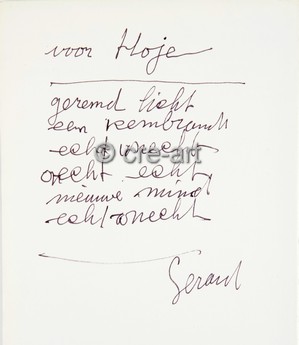 voor Hoje
geremd licht
een rembrandt
echt onecht
onecht echt
nieuwe
echt onecht
Gerard
© cre-art